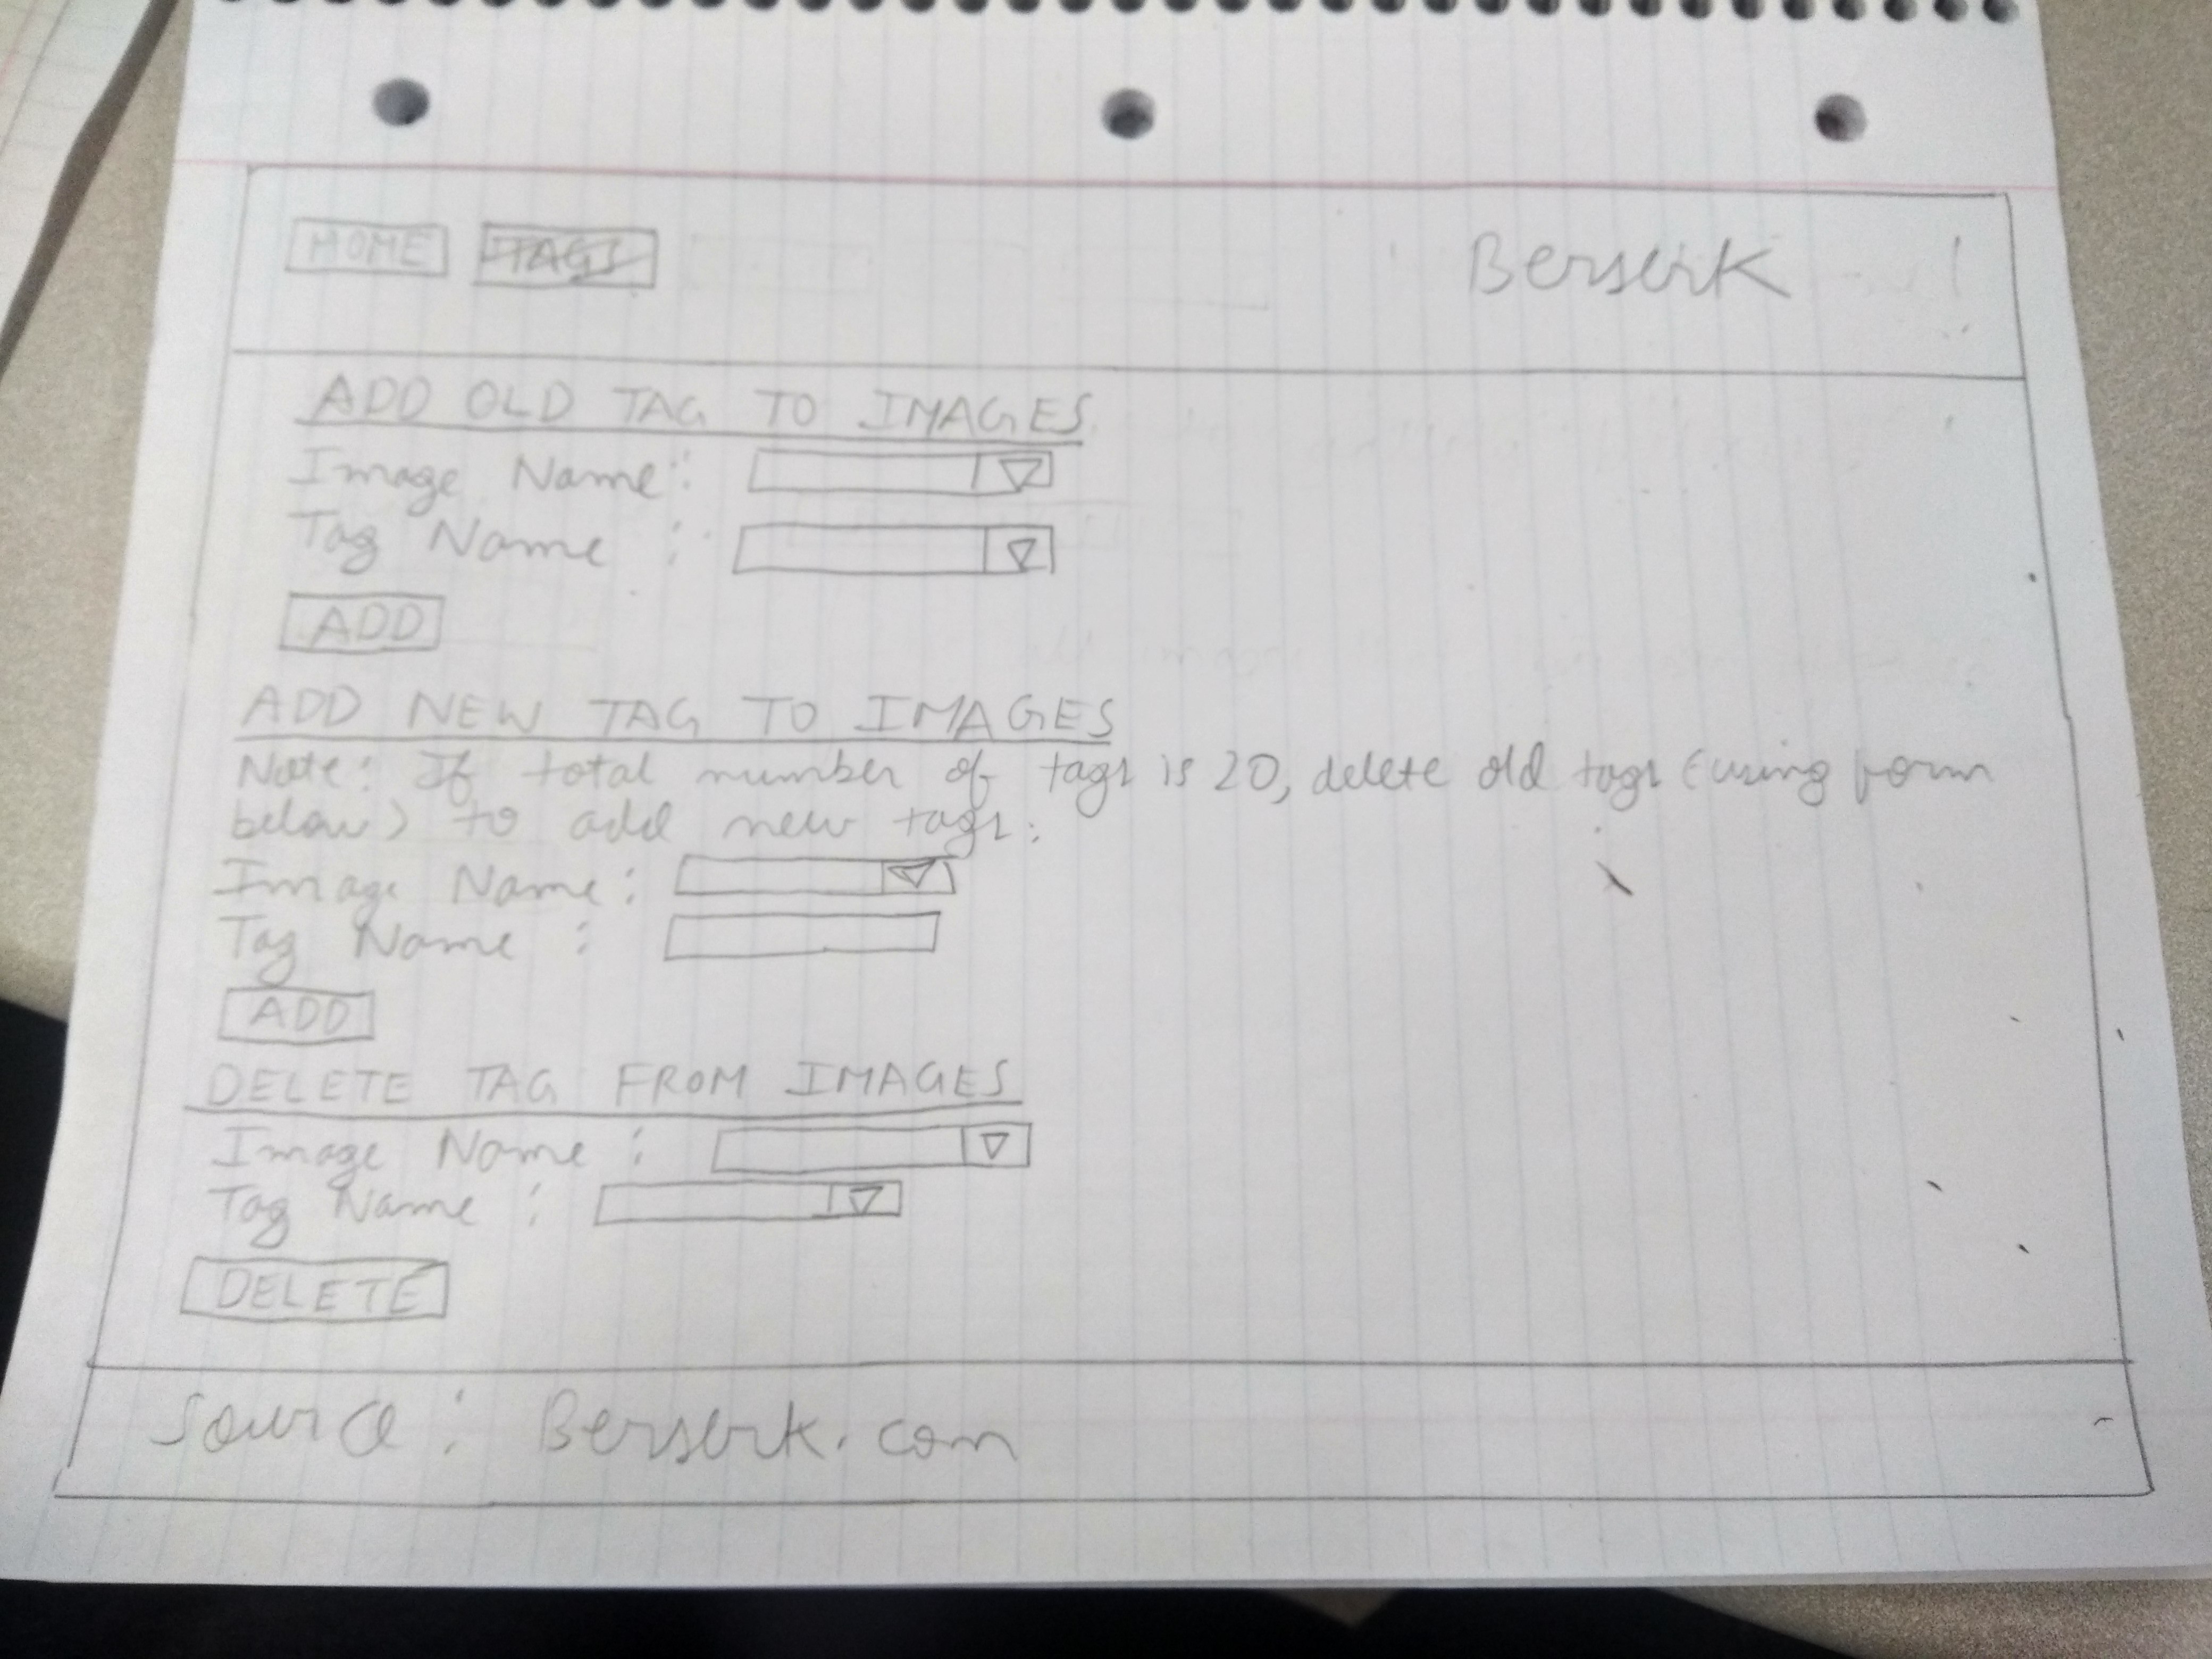 HOME TAGS Berserk
ADD OLD TAG TO IMAGES
Image Name:
Tag Name :
ADD
ADD NEW TAG TO IMAGES
Note: If total number of tags is 20, delete old tags (using form
below) to add new tags.
Image Name:
Tag Name :
ADD
DELETE TAG FROM IMAGES
Image Name :
Tag Name :
DELETE
Source: Berserk.com